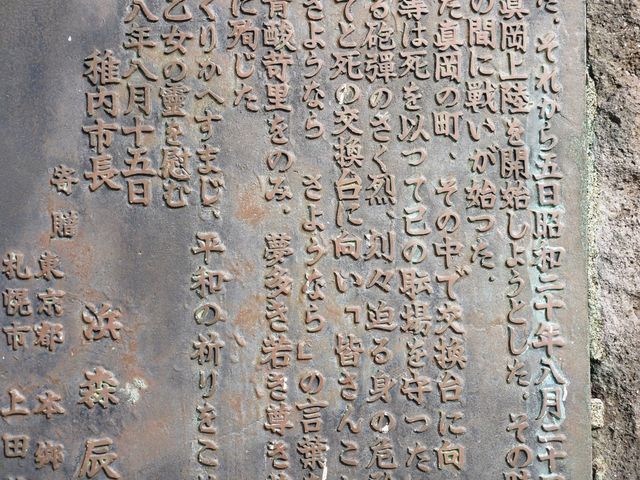 た、それから五日昭和二十年八月二十
真岡上陸を開始しようとした。その時
の間に戦いが始つた。
た真岡の町、その中で交換台に向
等は死を以つて己の職場を守つた
る砲彈のさく烈、刻々迫る身の危
てと死の交換台に向い「皆さんこ
さようなら さようなら」の言葉
青酸苛里をのみ、夢多き若き尊き
に殉じた
くりかへすまじ、平和の祈りをこ
乙女の靈を慰む
八年八月十五日
稚内市長 浜森辰
寄贈 東京都 本郷
札幌市 上田